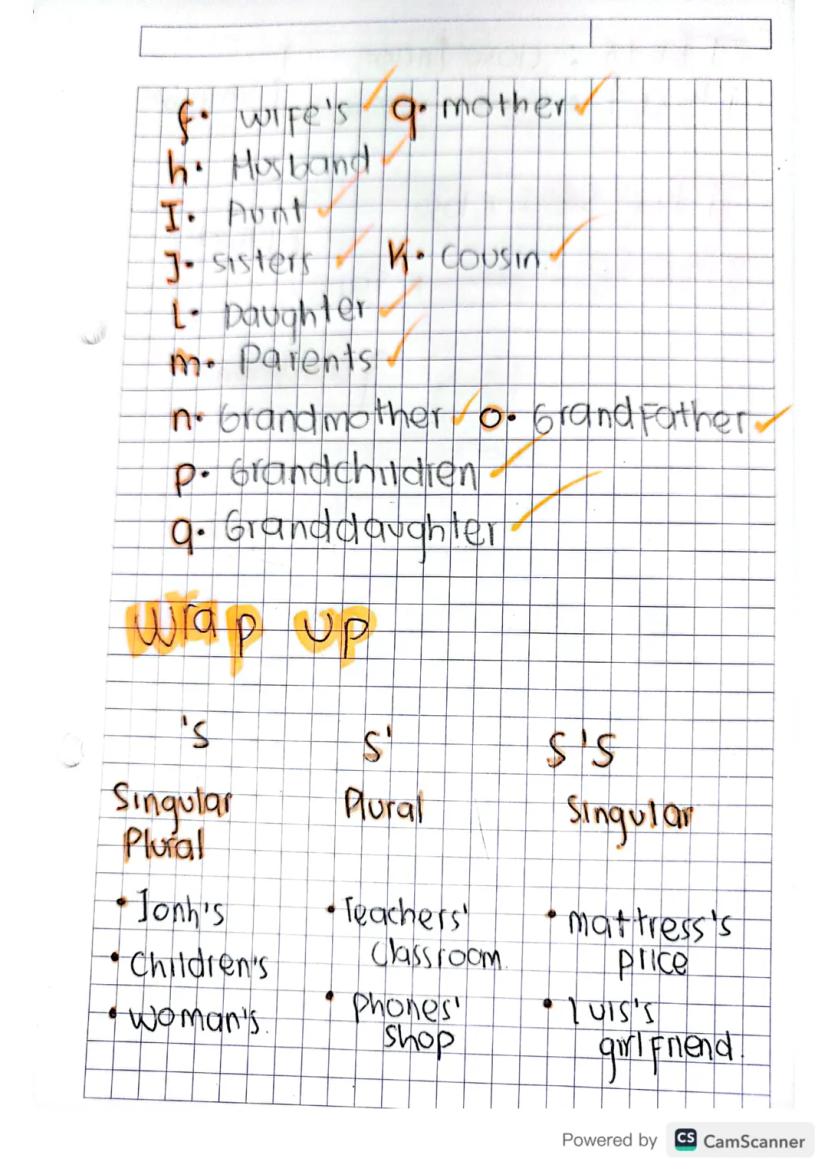 f. wife's g. mother
h. Husband
I. Aunt
J. sisters K. cousin
L. Daughter
m. Parents
n. Grandmother o. Grandfather
p. Grandchildren
q. Granddaughter
Wrap up
's s' s's
Singular Plural Singular
Plural
• Jonh's • Teachers' • mattress's
classroom. price
• Children's
• woman's. • phones' • luis's
shop girlfriend.
Powered by CS CamScanner